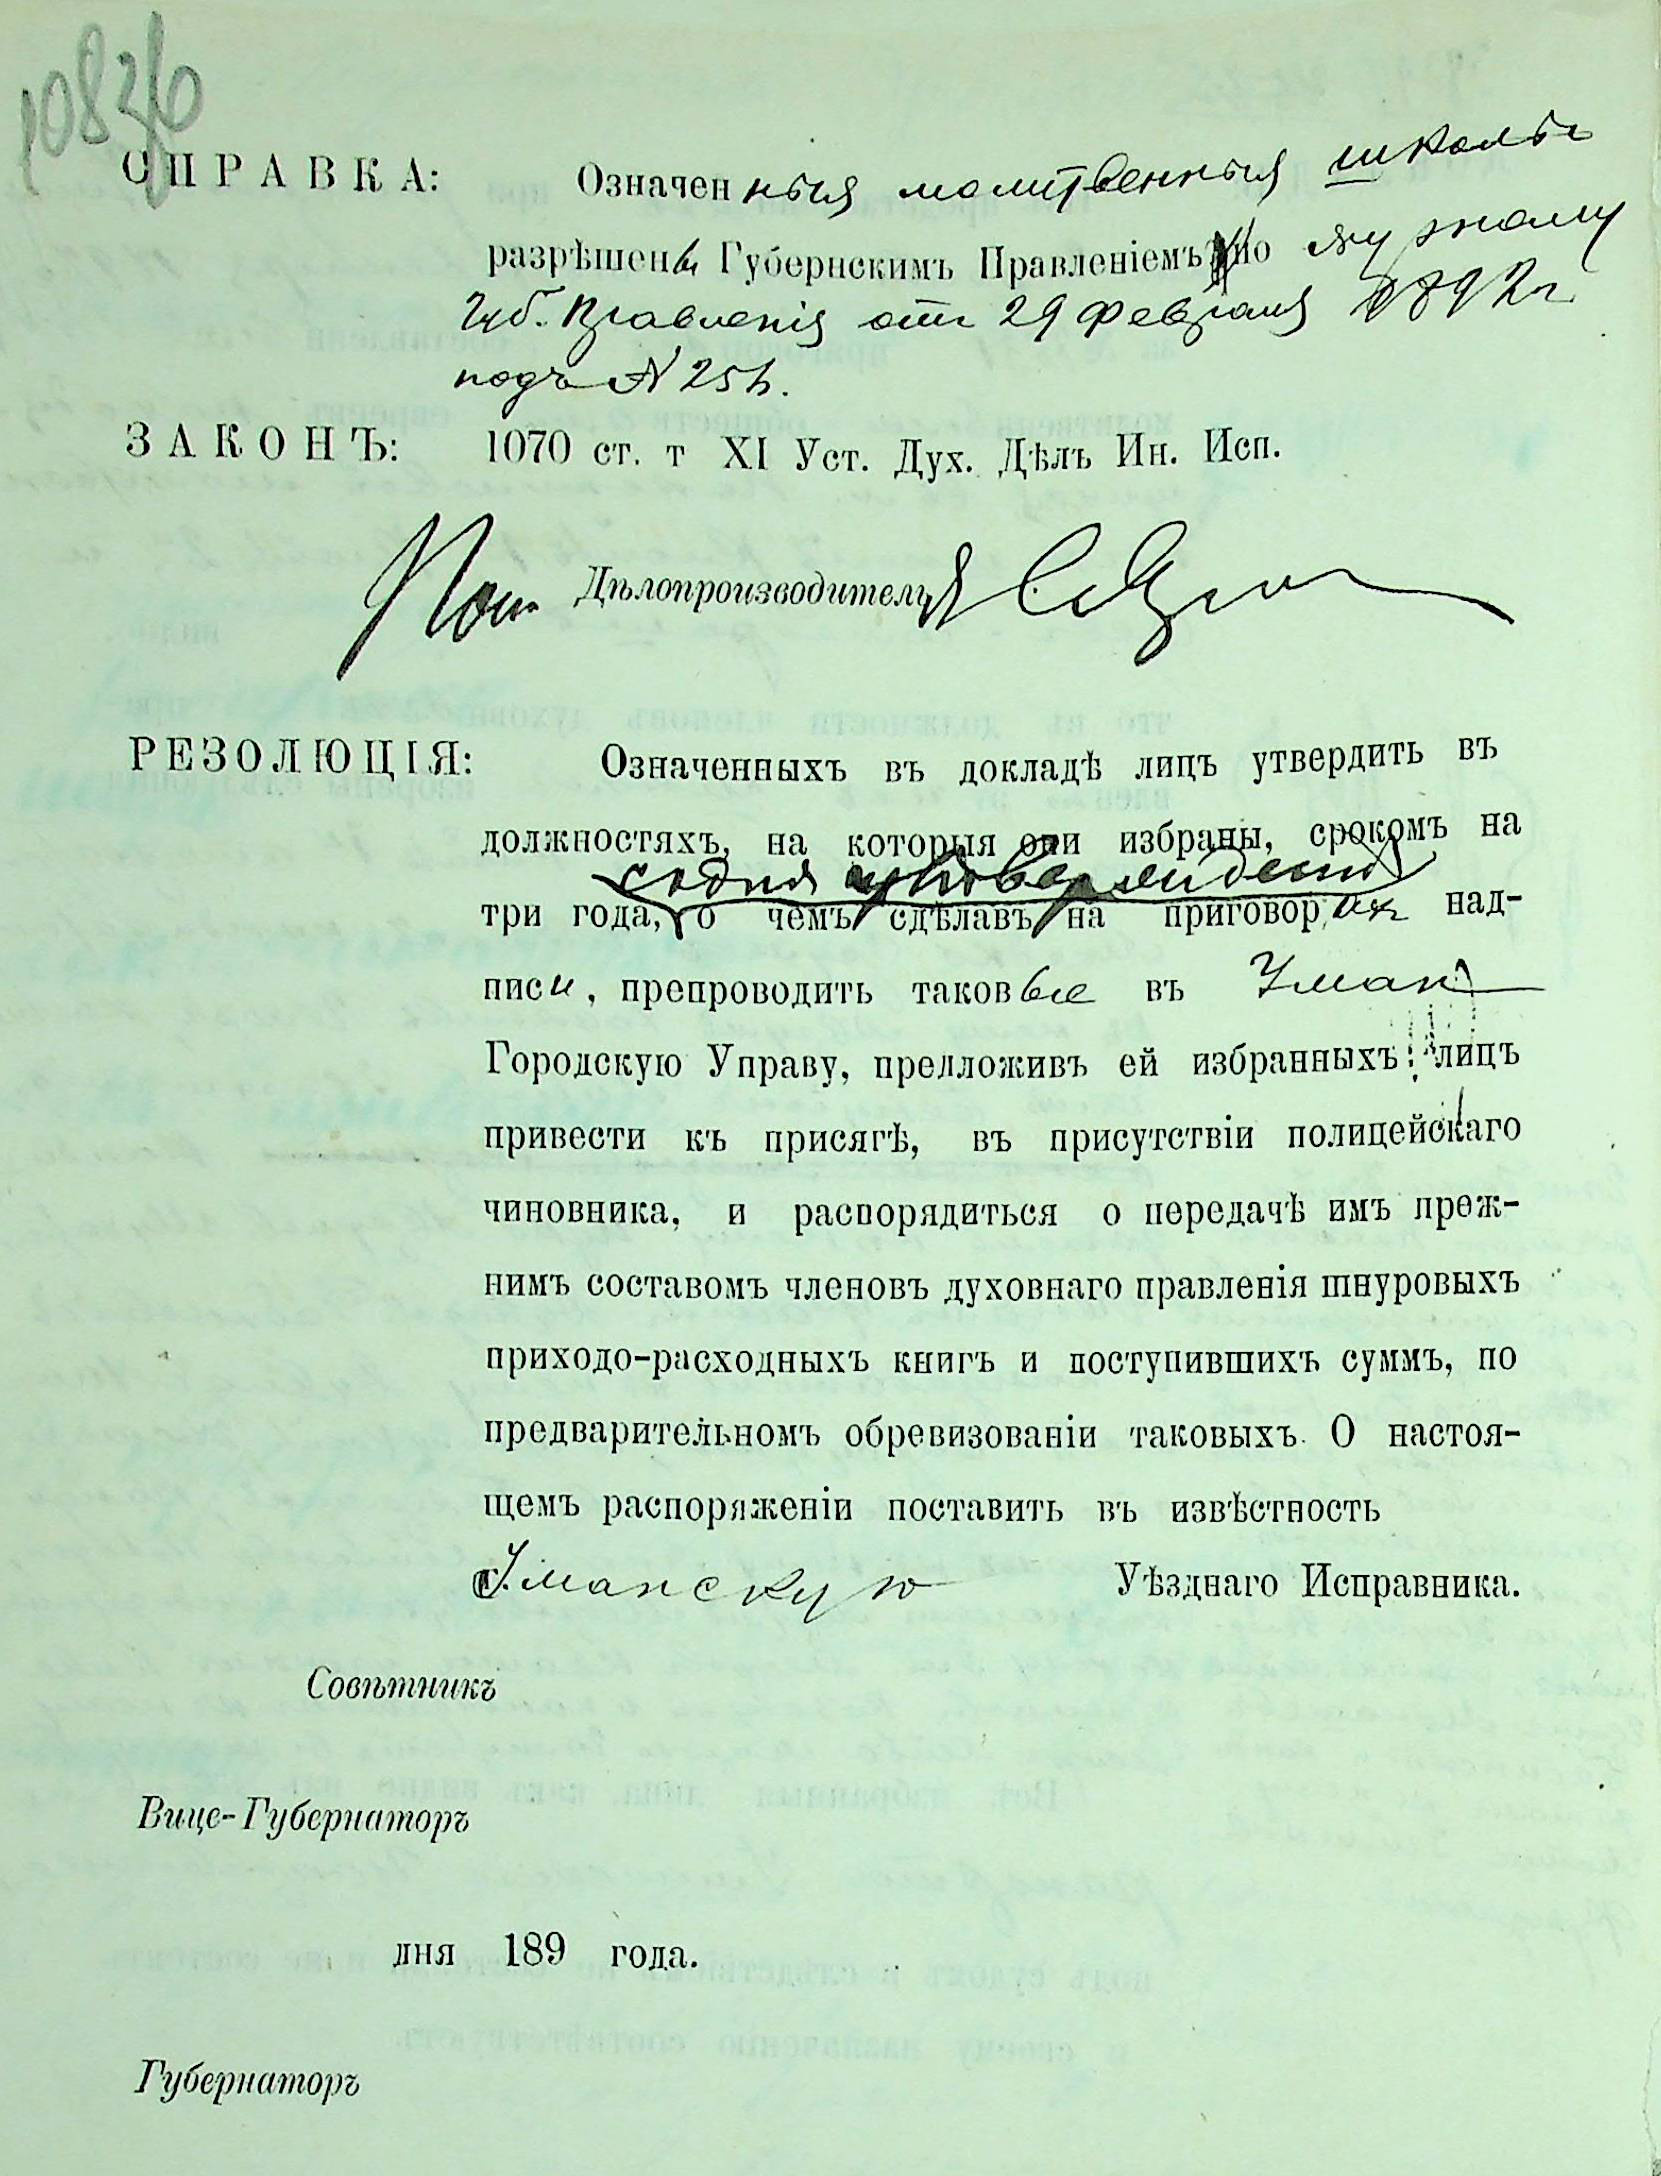 10836
СПРАВКА: Означенныя молитвенныя школы
разрѣшены Губернскимъ Правленіемъ по журналу
Губ. Правленія отъ 29 Февраля 1892 г.
подъ №
ЗАКОНЪ: 1070 ст. т XI Уст. Дух. Дѣлъ Ин. Исп.
Пом. Дѣлопроизводителя
РЕЗОЛЮЦІЯ: Означенныхъ въ докладѣ лицъ утвердить въ
должностяхъ, на которыя они избраны, срокомъ на
со дня утвержденія
три года, о чемъ сдѣлавъ на приговорахъ над-
писи, препроводить таковые въ Уман
Городскую Управу, предложивъ ей избранныхъ лицъ
привести къ присягѣ, въ присутствіи полицейскаго
чиновника, и распорядиться о передачѣ имъ преж-
нимъ составомъ членовъ духовнаго правленія шнуровыхъ
приходо-расходныхъ книгъ и поступившихъ суммъ, по
предварительномъ обревизованіи таковыхъ. О настоя-
щемъ распоряженіи поставить въ извѣстность
Уманскую Уѣзднаго Исправника.
Совѣтникъ
Вице-Губернаторъ
дня 189 года.
Губернаторъ